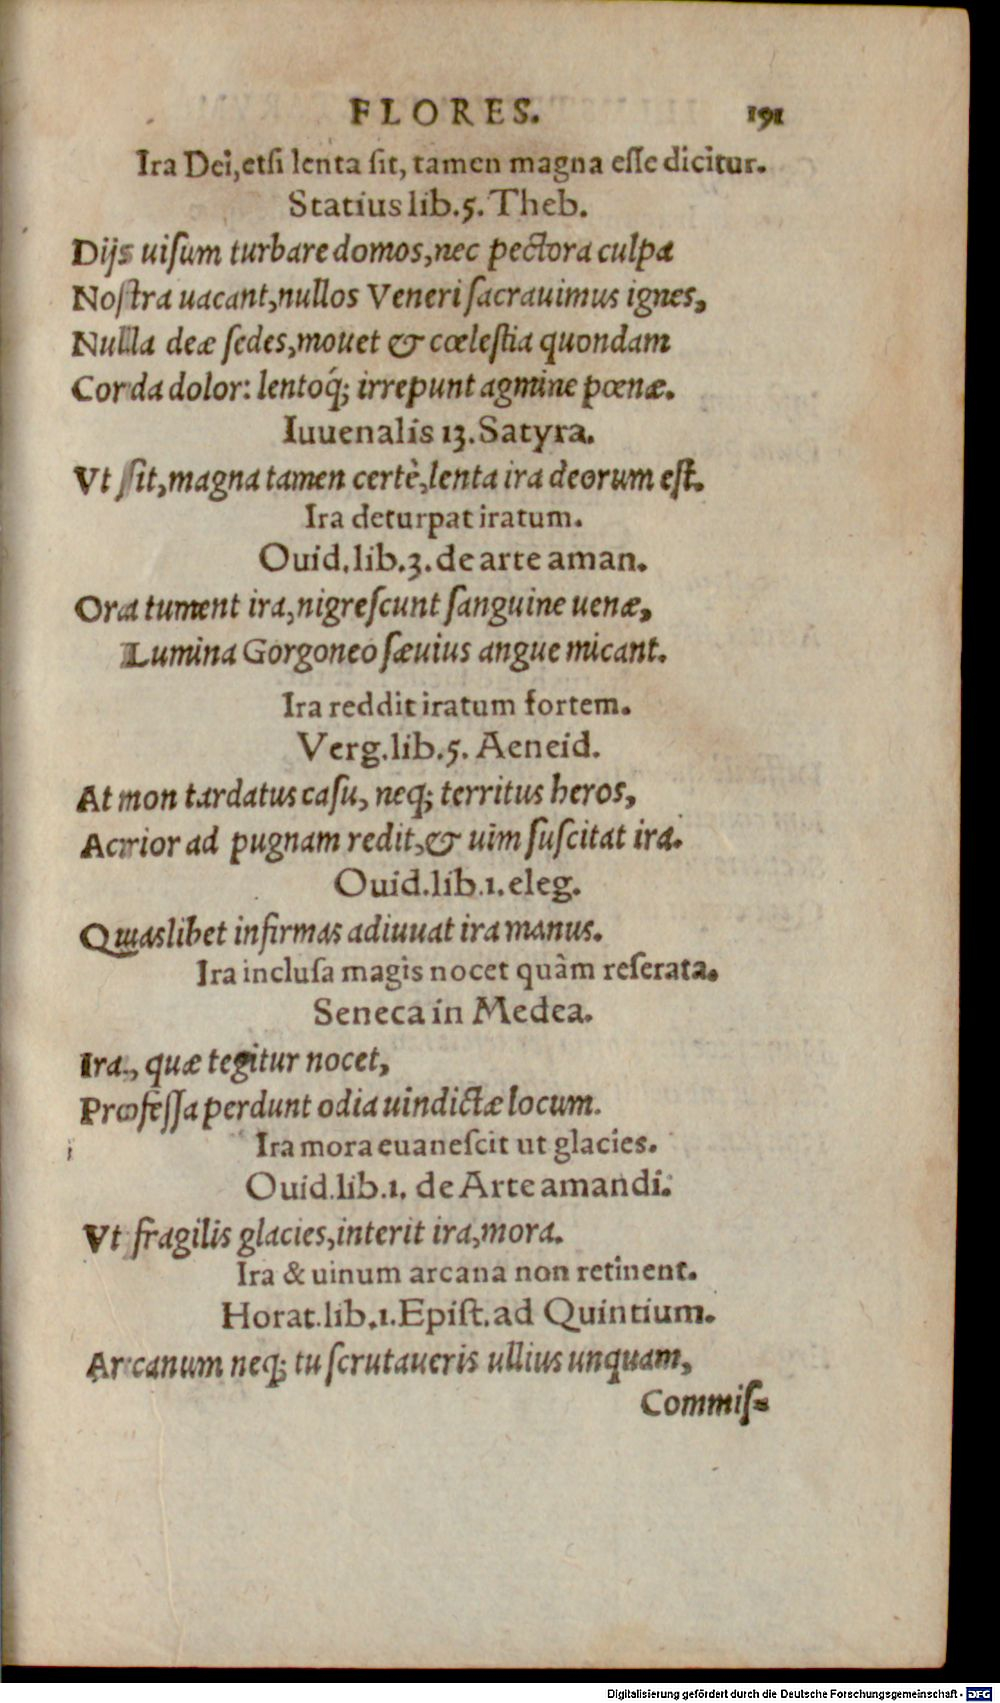 FLORES. 191
Ira Dei, etsi lenta sit, tamen magna esse dicitur.
Statius lib. 5. Theb.
Dijs uisum turbare domos, nec pectora culpa
Nostra uacant, nullos Veneri sacrauimus ignes,
Nulla deæ sedes, mouet & cœlestia quondam
Corda dolor: lentoq́; irrepunt agmine pœnæ.
Iuuenalis 13. Satyra.
Vt sit, magna tamen certè, lenta ira deorum est.
Ira deturpat iratum.
Ouid. lib. 3. de arte aman.
Ora tument ira, nigrescunt sanguine uenæ,
Lumina Gorgoneo sæuius angue micant.
Ira reddit iratum fortem.
Verg. lib. 5. Aeneid.
At mon tardatus casu, neq; territus heros,
Acrior ad pugnam redit, & uim suscitat ira.
Ouid. lib. 1. eleg.
Quaslibet infirmas adiuuat ira manus.
Ira inclusa magis nocet quàm reserata.
Seneca in Medea.
Ira, quæ tegitur nocet,
Professa perdunt odia uindictæ locum.
Ira mora euanescit ut glacies.
Ouid. lib. 1. de Arte amandi.
Vt fragilis glacies, interit ira, mora.
Ira & uinum arcana non retinent.
Horat. lib. 1. Epist. ad Quintium.
Arcanum neq; tu scrutaueris ullius unquam,
Commis-
Digitalisierung gefördert durch die Deutsche Forschungsgemeinschaft - DFG